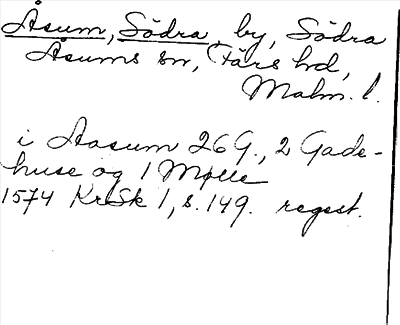 Åsum, Södra, by, Södra
Åsums sn, Färs hd,
Malm. l.
i Aasum 26 G., 2 Gade-
huse og 1 Mølle
1574 KrSk 1, s. 149. regest.